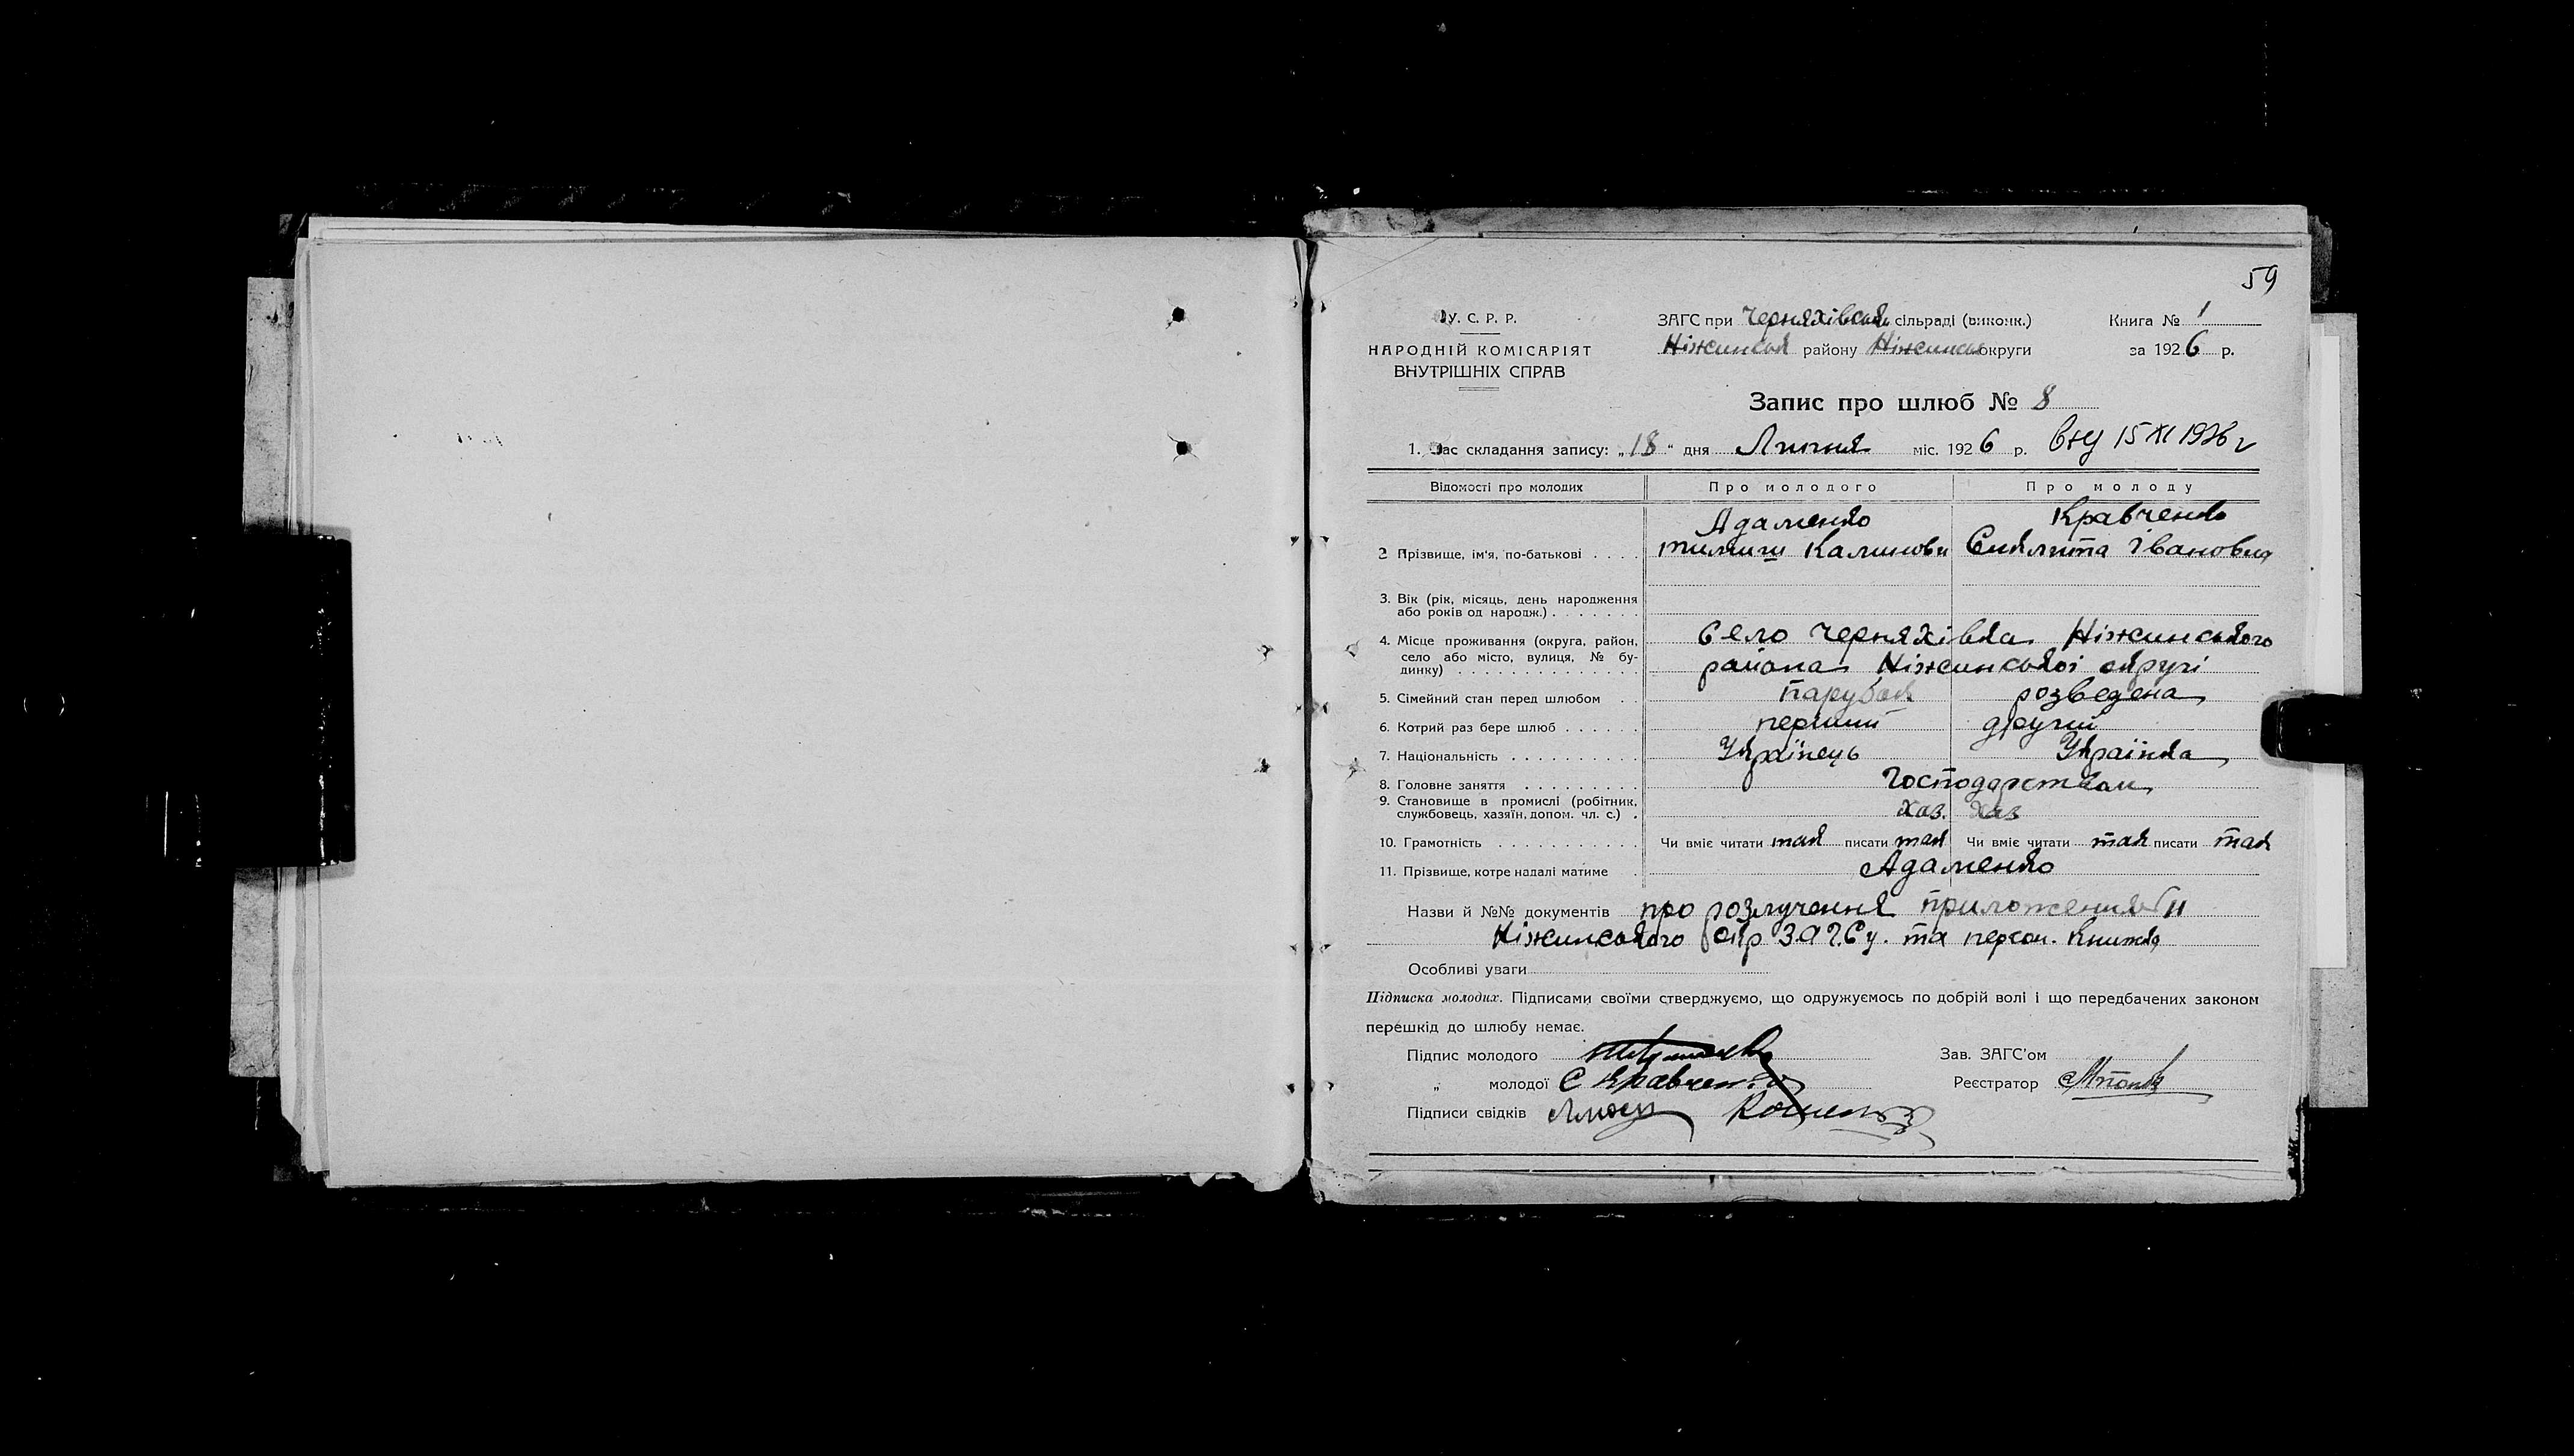 59
У. С. Р. Р.
НАРОДНІЙ КОМІСАРІЯТ
ВНУТРІШНІХ СПРАВ
ЗАГС при Черняхівській сільраді (виконк.)
Ніжинськ району Ніжинськ округи
Книга № 1
за 1926 р.
Запис про шлюб № 8
1. Час складання запису: „18" дня Липня міс. 1926 р. 15 XI 1926 г
Відомості про молодих Про молодого Про молоду
Адаменко Кравченко
2 Прізвище, ім'я, по-батькові . . . . Тимиш Калинови Івановна
3. Вік (рік, місяць, день народження
або років од народж.) . . . . . . .
4. Місце проживання (округа, район, Село Черняхівка Ніжинського
село або місто, вулиця, № бу- района Ніжинської округі
динку) . . . . . . . . . . . . . .
5. Сімейний стан перед шлюбом . . парубок розведена
6. Котрий раз бере шлюб . . . . . . перший другий
7. Національність . . . . . . . . . . Українець Українка
8. Головне заняття . . . . . . . . . Господарством
9. Становище в промислі (робітник,
службовець, хазяїн, допом. чл. с.) . хаз. хаз
10. Грамотність . . . . . . . . . . . Чи вміє читати так писати так Чи вміє читати так писати так
11. Прізвище, котре надалі матиме . Адаменко
Назви й №№ документів про розлучення
Ніжинського окр З.А.Г.Су. та персон. книжка
Особливі уваги
Підписка молодих. Підписами своїми стверджуємо, що одружуємось по добрій волі і що передбачених законом
перешкід до шлюбу немає.
Підпис молодого Зав. ЗАГС'ом
„ молодої С Кравченко Реєстратор
Підписи свідків